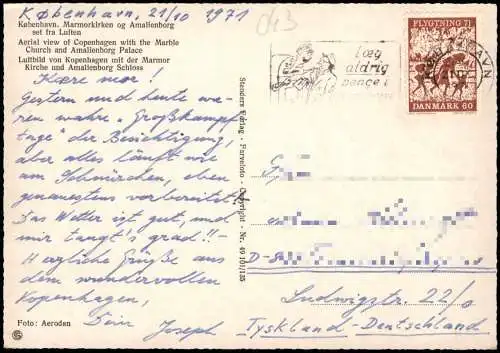 København, 21/10 1971
d43
København. Marmorkirken og Amalienborg
set fra Luften
Aerial view of Copenhagen with the Marble
Church and Amalienborg Palace
Luftbild von Kopenhagen mit der Marmor
Kirche und Amalienborg Schloss
Kære mor!
Gestern und heute wa-
ren wahre "Großkampf-
tage" der Besichtigung,
aber alles läuft wie
am Schnürchen, eben
genauestens vorbereitet!
Das Wetter ist gut, und
mir taugt's grad!!-
Herzliche Grüße aus
dem wundervollen
Kopenhagen,
Dein Joseph
Foto: Aerodan
Stenders Forlag - Farvefoto - Copyright - Nr. 49 101/135
læg
aldrig
penge i
FLYGTNING 71
DANMARK 60
KØBENHAVN
D-8
Ludwigstr. 22/0
Tyskland-Deutschland